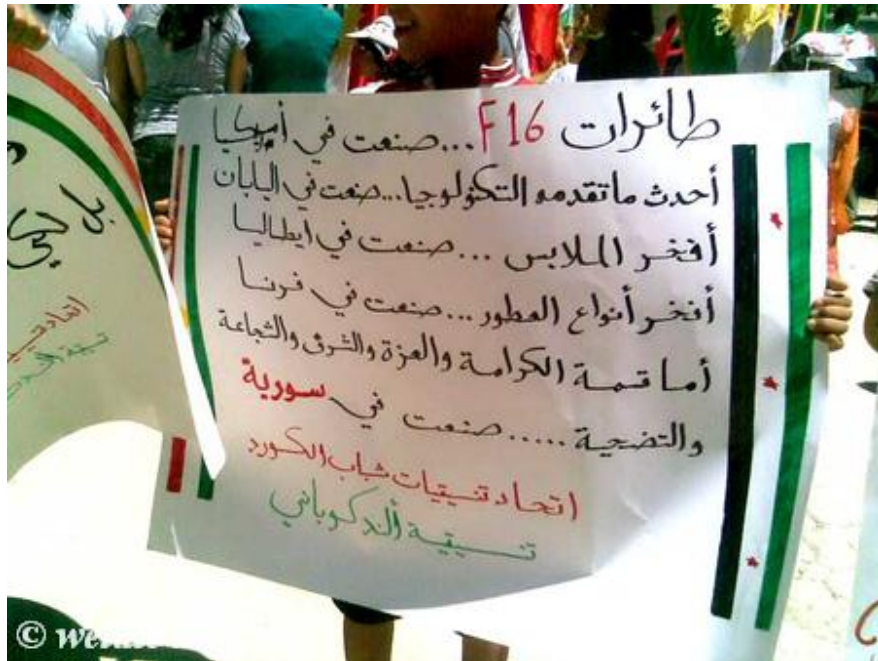 طائرات F16...صنعت في أمريكا
أحدث ما تقدمه التكنولوجيا...صنعت في اليابان
أفخر الملابس...صنعت في ايطاليا
أفخر أنواع العطور...صنعت في فرنسا
أما قمة الكرامة والعزة والشرف والشجاعة
والتضحية.....صنعت في سورية
اتحاد تنسيقيات شباب الكورد
تنسيقية ألند كوباني
بل لكي
اتحاد
©